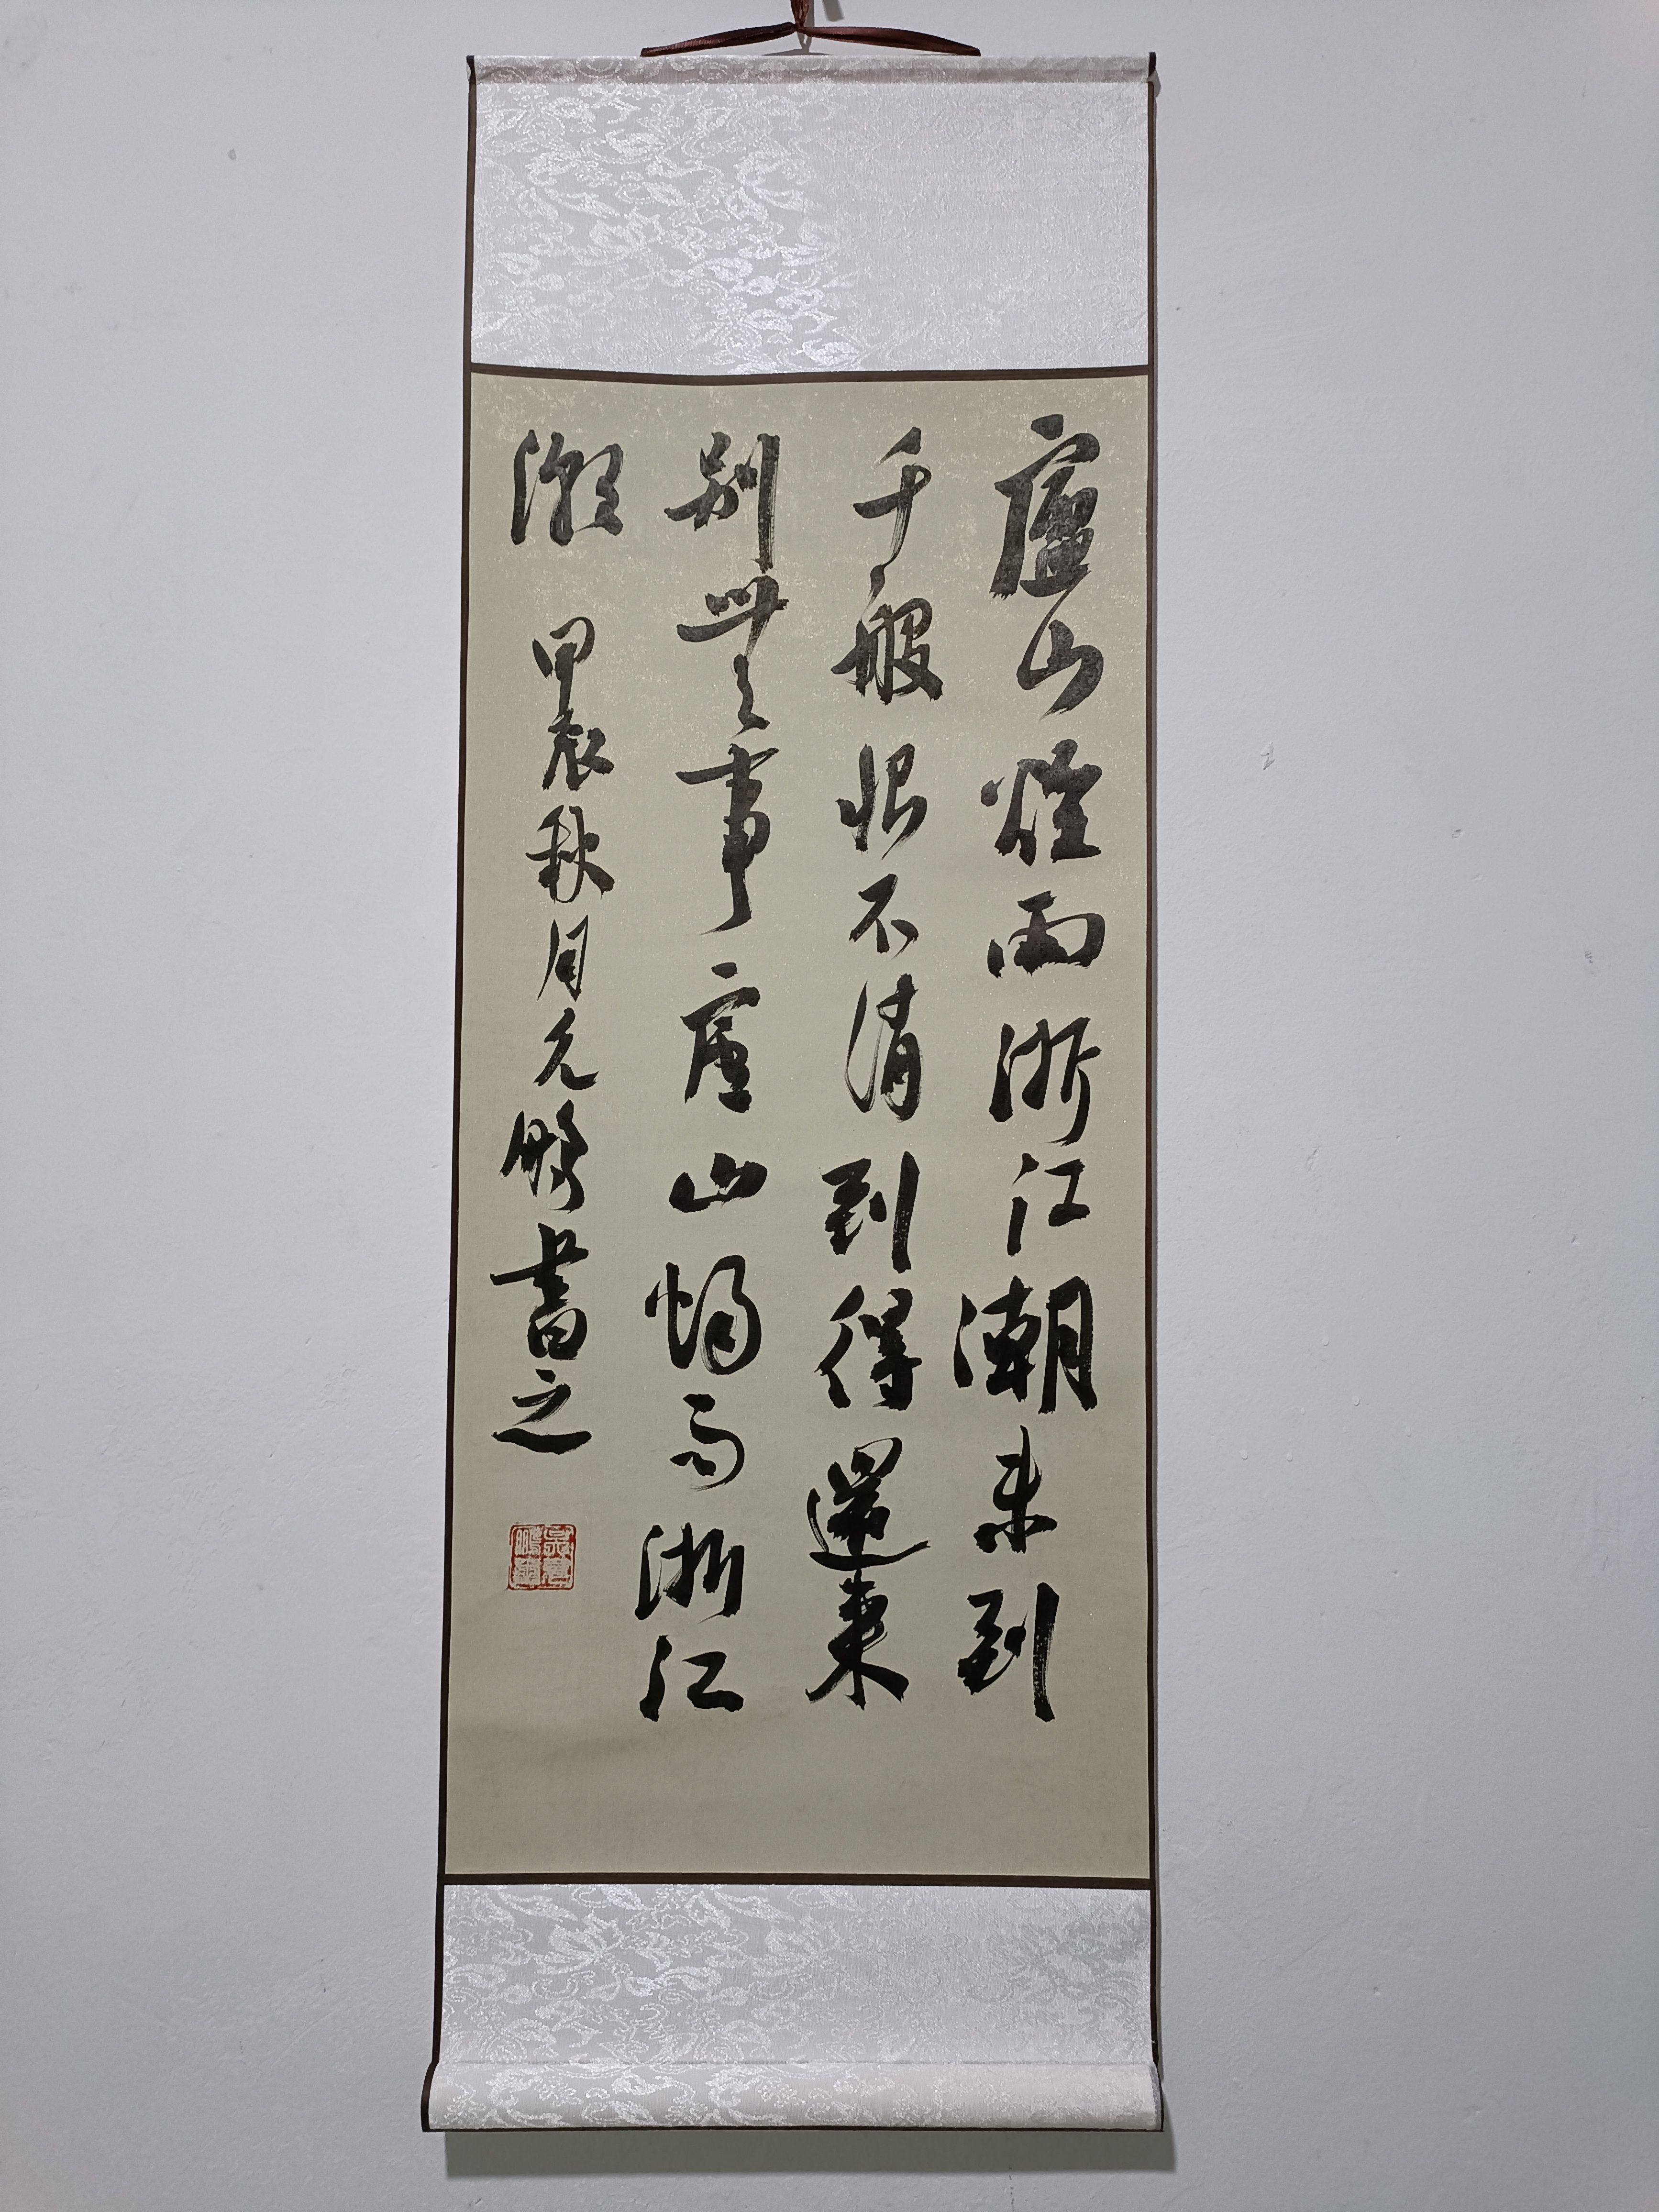 廬山煙雨浙江潮未到
千般恨不消到得還來
別無事廬山煙雨浙江
潮
甲辰秋月允鵬書之